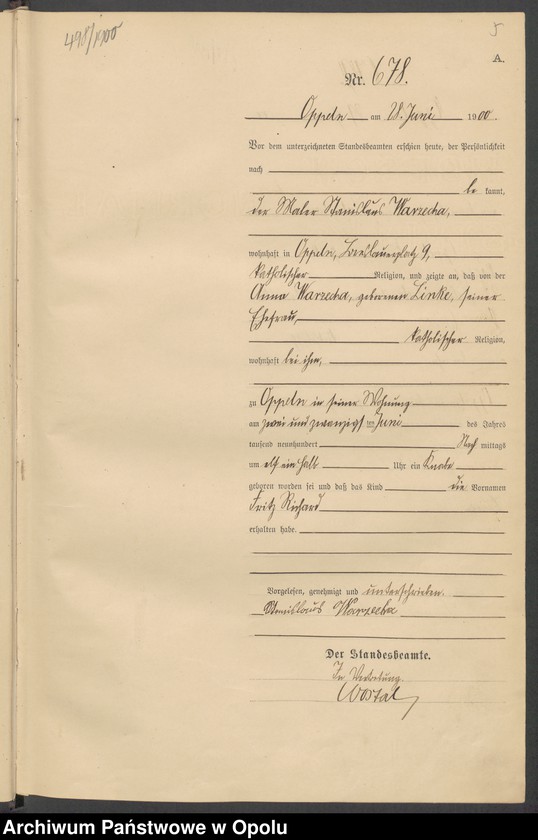 498/1900
5
A.
Nr. 678.
Oppeln am 28. Juni 1900.
Vor dem unterzeichneten Standesbeamten erschien heute, der Persönlichkeit
nach
be kannt,
der Maler Stanislaus Warzecha,
wohnhaft in Oppeln, Breslauerplatz 9,
katholischer Religion, und zeigte an, daß von der
Anna Warzecha, geborenen Linke, seiner
Ehefrau,
katholischer Religion,
wohnhaft bei ihm,
zu Oppeln in seiner Wohnung
am zwei und zwanzigsten Juni des Jahres
tausend neunhundert Nach mittags
um elf ein halb Uhr ein Knabe
geboren worden sei und daß das Kind die Vornamen
Fritz Richard
erhalten habe.
Vorgelesen, genehmigt und unterschrieben.
Stanislaus Warzecha
Der Standesbeamte.
In Vertretung.
Wostal
Archiwum Państwowe w Opolu